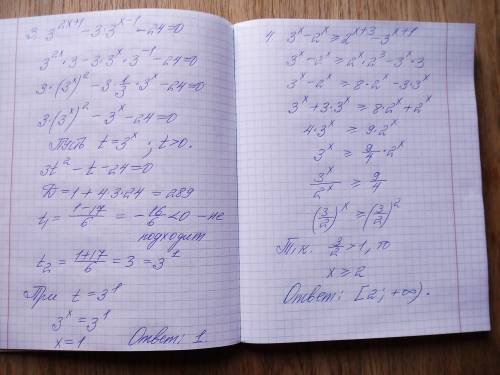 3. 3^{2x+1} - 3·3^{x-1} - 24=0
3^{2x}·3 - 3·3^x·3^{-1} - 24=0
3·(3^x)^2 - 3·\frac{1}{3}·3^x - 24=0
3·(3^x)^2 - 3^x - 24=0
Пусть t=3^x; t>0.
3t^2 - t - 24=0
D=1+4·3·24 = 289
t_1 = \frac{1-17}{6} = -\frac{16}{6}<0 - не
подходит
t_2 = \frac{1+17}{6} = 3 = 3^1
При t = 3^1
3^x = 3^1
x=1
Ответ: 1.
4. 3^x - 2^x ≥ 2^{x+3} - 3^{x+1}
3^x - 2^x ≥ 2^x·2^3 - 3^x·3
3^x - 2^x ≥ 8·2^x - 3·3^x
3^x + 3·3^x ≥ 8·2^x + 2^x
4·3^x ≥ 9·2^x
3^x ≥ \frac{9}{4}·2^x
\frac{3^x}{2^x} ≥ \frac{9}{4}
(\frac{3}{2})^x ≥ (\frac{3}{2})^2
Т.к. \frac{3}{2}>1, то
x ≥ 2
Ответ: [2; +∞).